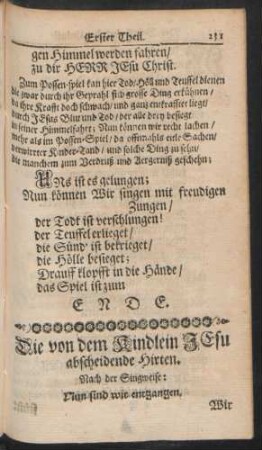 Erster Theil. 151
gen Himmel werden fahren/
zu dir HERR JESu Christ.
Zum Possen-spiel kan hier Tod/Höll und Teuffel dienen
die zwar durch ihr Geprahl sich grosse Ding erkühnen/
ihre Krafft doch schwach/ und gantz entkrafftet liegt/
durch JEsus Blut und Tod/ der alle drey besiegt
in seiner Himmelfahrt; Nun können wir recht lachen/
mehr als im Possen-Spiel/ da offtmahls eitle Sachen/
verwirrter Kinder-Tand/ und solche Ding zu sehn/
die manchem zum Verdruß und Aergernuß geschehn;
UNs ist es gelungen;
Nun können Wir singen mit freudigen
Zungen/
der Todt ist verschlungen!
der Teuffel erlieget/
die Sünd' ist bekrieget/
die Hölle besieget;
Drauff klopfft in die Hände/
das Spiel ist zum
E N D E.
Die von dem Kindlein JEsu
abscheidende Hirten.
Nach der Singweise:
Nun sind wir entgantzen.
Wir